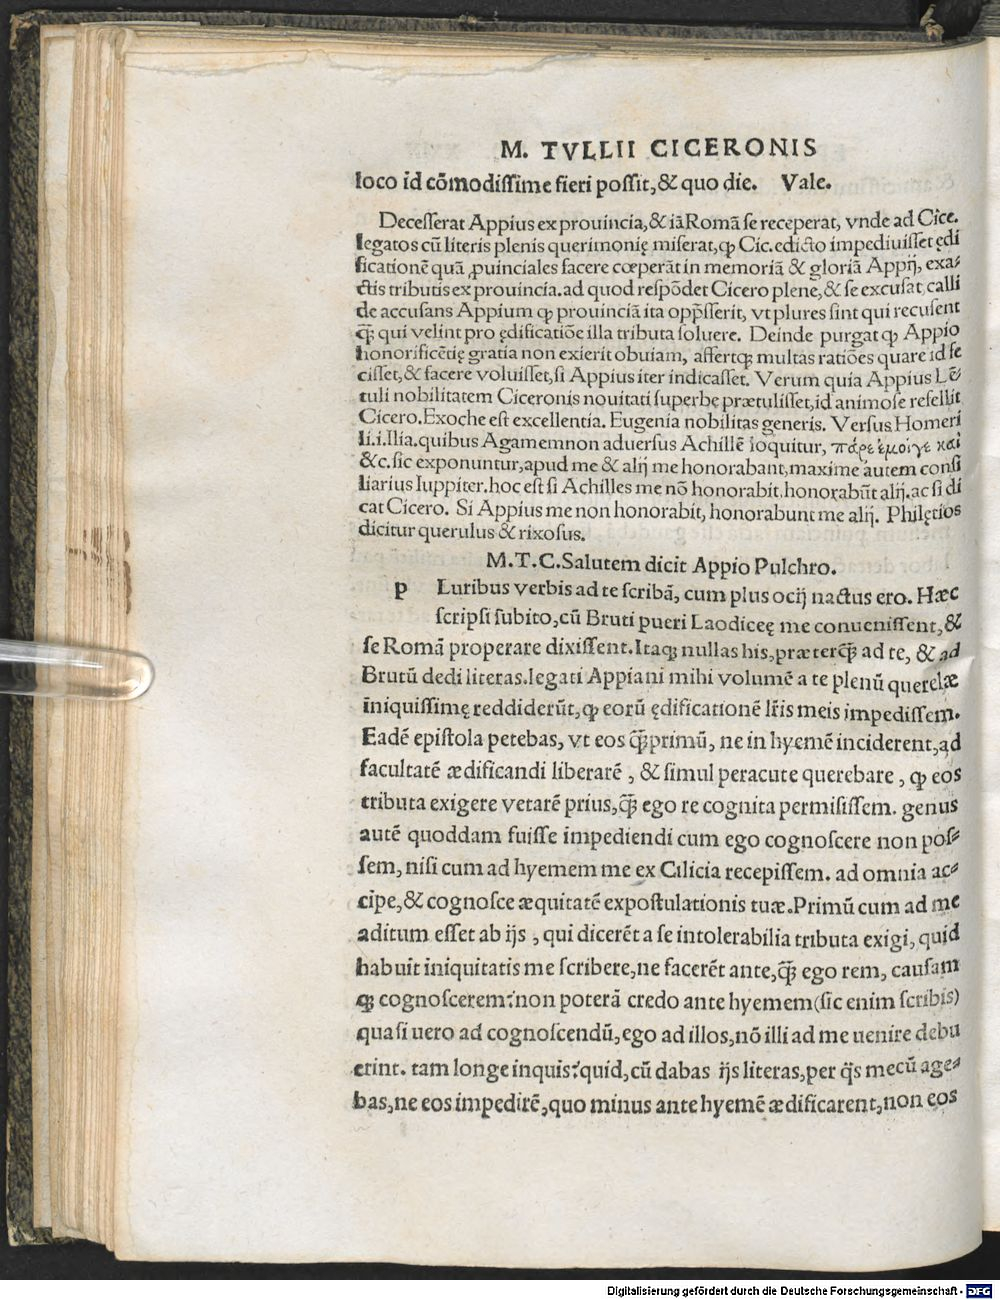 M. TVLLII CICERONIS
loco id cõmodissime fieri possit, & quo die. Vale.
Decesserat Appius ex prouincia, & iã Romã se receperat, vnde ad Cice.
legatos cũ literis plenis querimonię miserat, ꝙ Cic. edicto impediuisset ędi
ficationẽ quã ꝓuinciales facere cœperãt in memoriã & gloriã Appij, exa⸗
ctis tributis ex prouincia. ad quod respõdet Cicero plene, & se excusat, calli
de accusans Appium ꝙ prouinciã ita opp̃sserit, vt plures sint qui recusent
q̃ꝫ qui velint pro ędificatiõe illa tributa soluere. Deinde purgat ꝙ Appio
honorificẽtię gratia non exierit obuiam, affertqꝫ multas ratiões quare id fe
cisset, & facere voluisset, si Appius iter indicasset. Verum quia Appius Lẽ
tuli nobilitatem Ciceronis nouitati superbe prætulisset, id animose refellit
Cicero. Exoche est excellentia. Eugenia nobilitas generis. Versus Homeri
li. i. Ilia. quibus Agamemnon aduersus Achillẽ loquitur, πάρε ἐμοίγε καὶ
&c. sic exponuntur, apud me & alij me honorabant, maxime autem consi
liarius Iuppiter. hoc est si Achilles me nõ honorabit, honorabũt alij. ac si di
cat Cicero. Si Appius me non honorabit, honorabunt me alij. Philętios
dicitur querulus & rixosus.
M. T. C. Salutem dicit Appio Pulchro.
p Luribus verbis ad te scribã, cum plus ocij nactus ero. Hæc
scripsi subito, cũ Bruti pueri Laodiceę me conuenissent, &
se Romã properare dixissent. Itaqꝫ nullas his, præterq̃ꝫ ad te, & ad
Brutũ dedi literas. legati Appiani mihi volumẽ a te plenũ querelæ
iniquissimę reddiderũt, ꝙ eorũ ędificationẽ lr̃is meis impedissem.
Eadẽ epistola petebas, vt eos q̃ꝫprimũ, ne in hyemẽ inciderent, ad
facultatẽ ædificandi liberarẽ, & simul peracute querebare, ꝙ eos
tributa exigere vetarẽ prius, q̃ꝫ ego re cognita permisissem. genus
autẽ quoddam fuisse impediendi cum ego cognoscere non pos⸗
sem, nisi cum ad hyemem me ex Cilicia recepissem. ad omnia ac⸗
cipe, & cognosce æquitatẽ expostulationis tuæ. Primũ cum ad me
aditum esset ab ijs, qui dicerẽt a se intolerabilia tributa exigi, quid
habuit iniquitatis me scribere, ne facerẽt ante, q̃ꝫ ego rem, causam
qꝫ cognoscerem? non poterã credo ante hyemem (sic enim scribis)
quasi uero ad cognoscendũ, ego ad illos, nõ illi ad me uenire debu
erint. tam longe inquis? quid, cũ dabas ijs literas, per q̃s mecũ age⸗
bas, ne eos impedirẽ, quo minus ante hyemẽ ædificarent, non eos
Digitalisierung gefördert durch die Deutsche Forschungsgemeinschaft - DFG